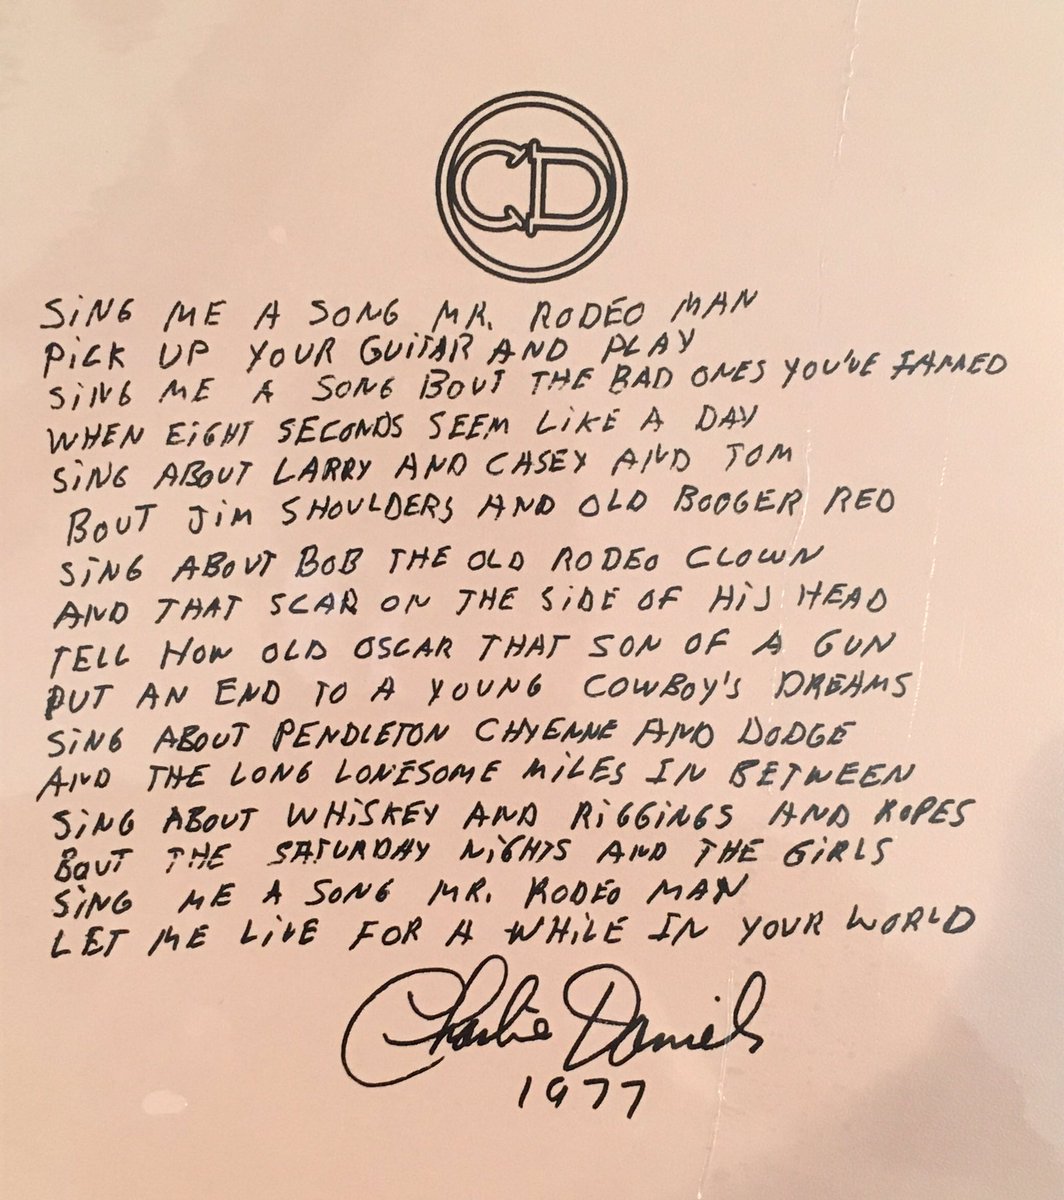 CD
SING ME A SONG MR. RODEO MAN
PICK UP YOUR GUITAR AND PLAY
SING ME A SONG BOUT THE BAD ONES YOU'VE
WHEN EIGHT SECONDS SEEM LIKE A DAY
SING ABOUT LARRY AND CASEY AND TOM
BOUT JIM SHOULDERS AND OLD BOOGER RED
SING ABOUT BOB THE OLD RODEO CLOWN
AND THAT SCAR ON THE SIDE OF HIS HEAD
TELL HOW OLD OSCAR THAT SON OF A GUN
PUT AN END TO A YOUNG COWBOY'S DREAMS
SING ABOUT PENDLETON CHYENNE AND DODGE
AND THE LONG LONESOME MILES IN BETWEEN
SING ABOUT WHISKEY AND RIGGINGS AND ROPES
BOUT THE SATURDAY NIGHTS AND THE GIRLS
SING ME A SONG MR. RODEO MAN
LET ME LIVE FOR A WHILE IN YOUR WORLD
Charlie Daniels
1977